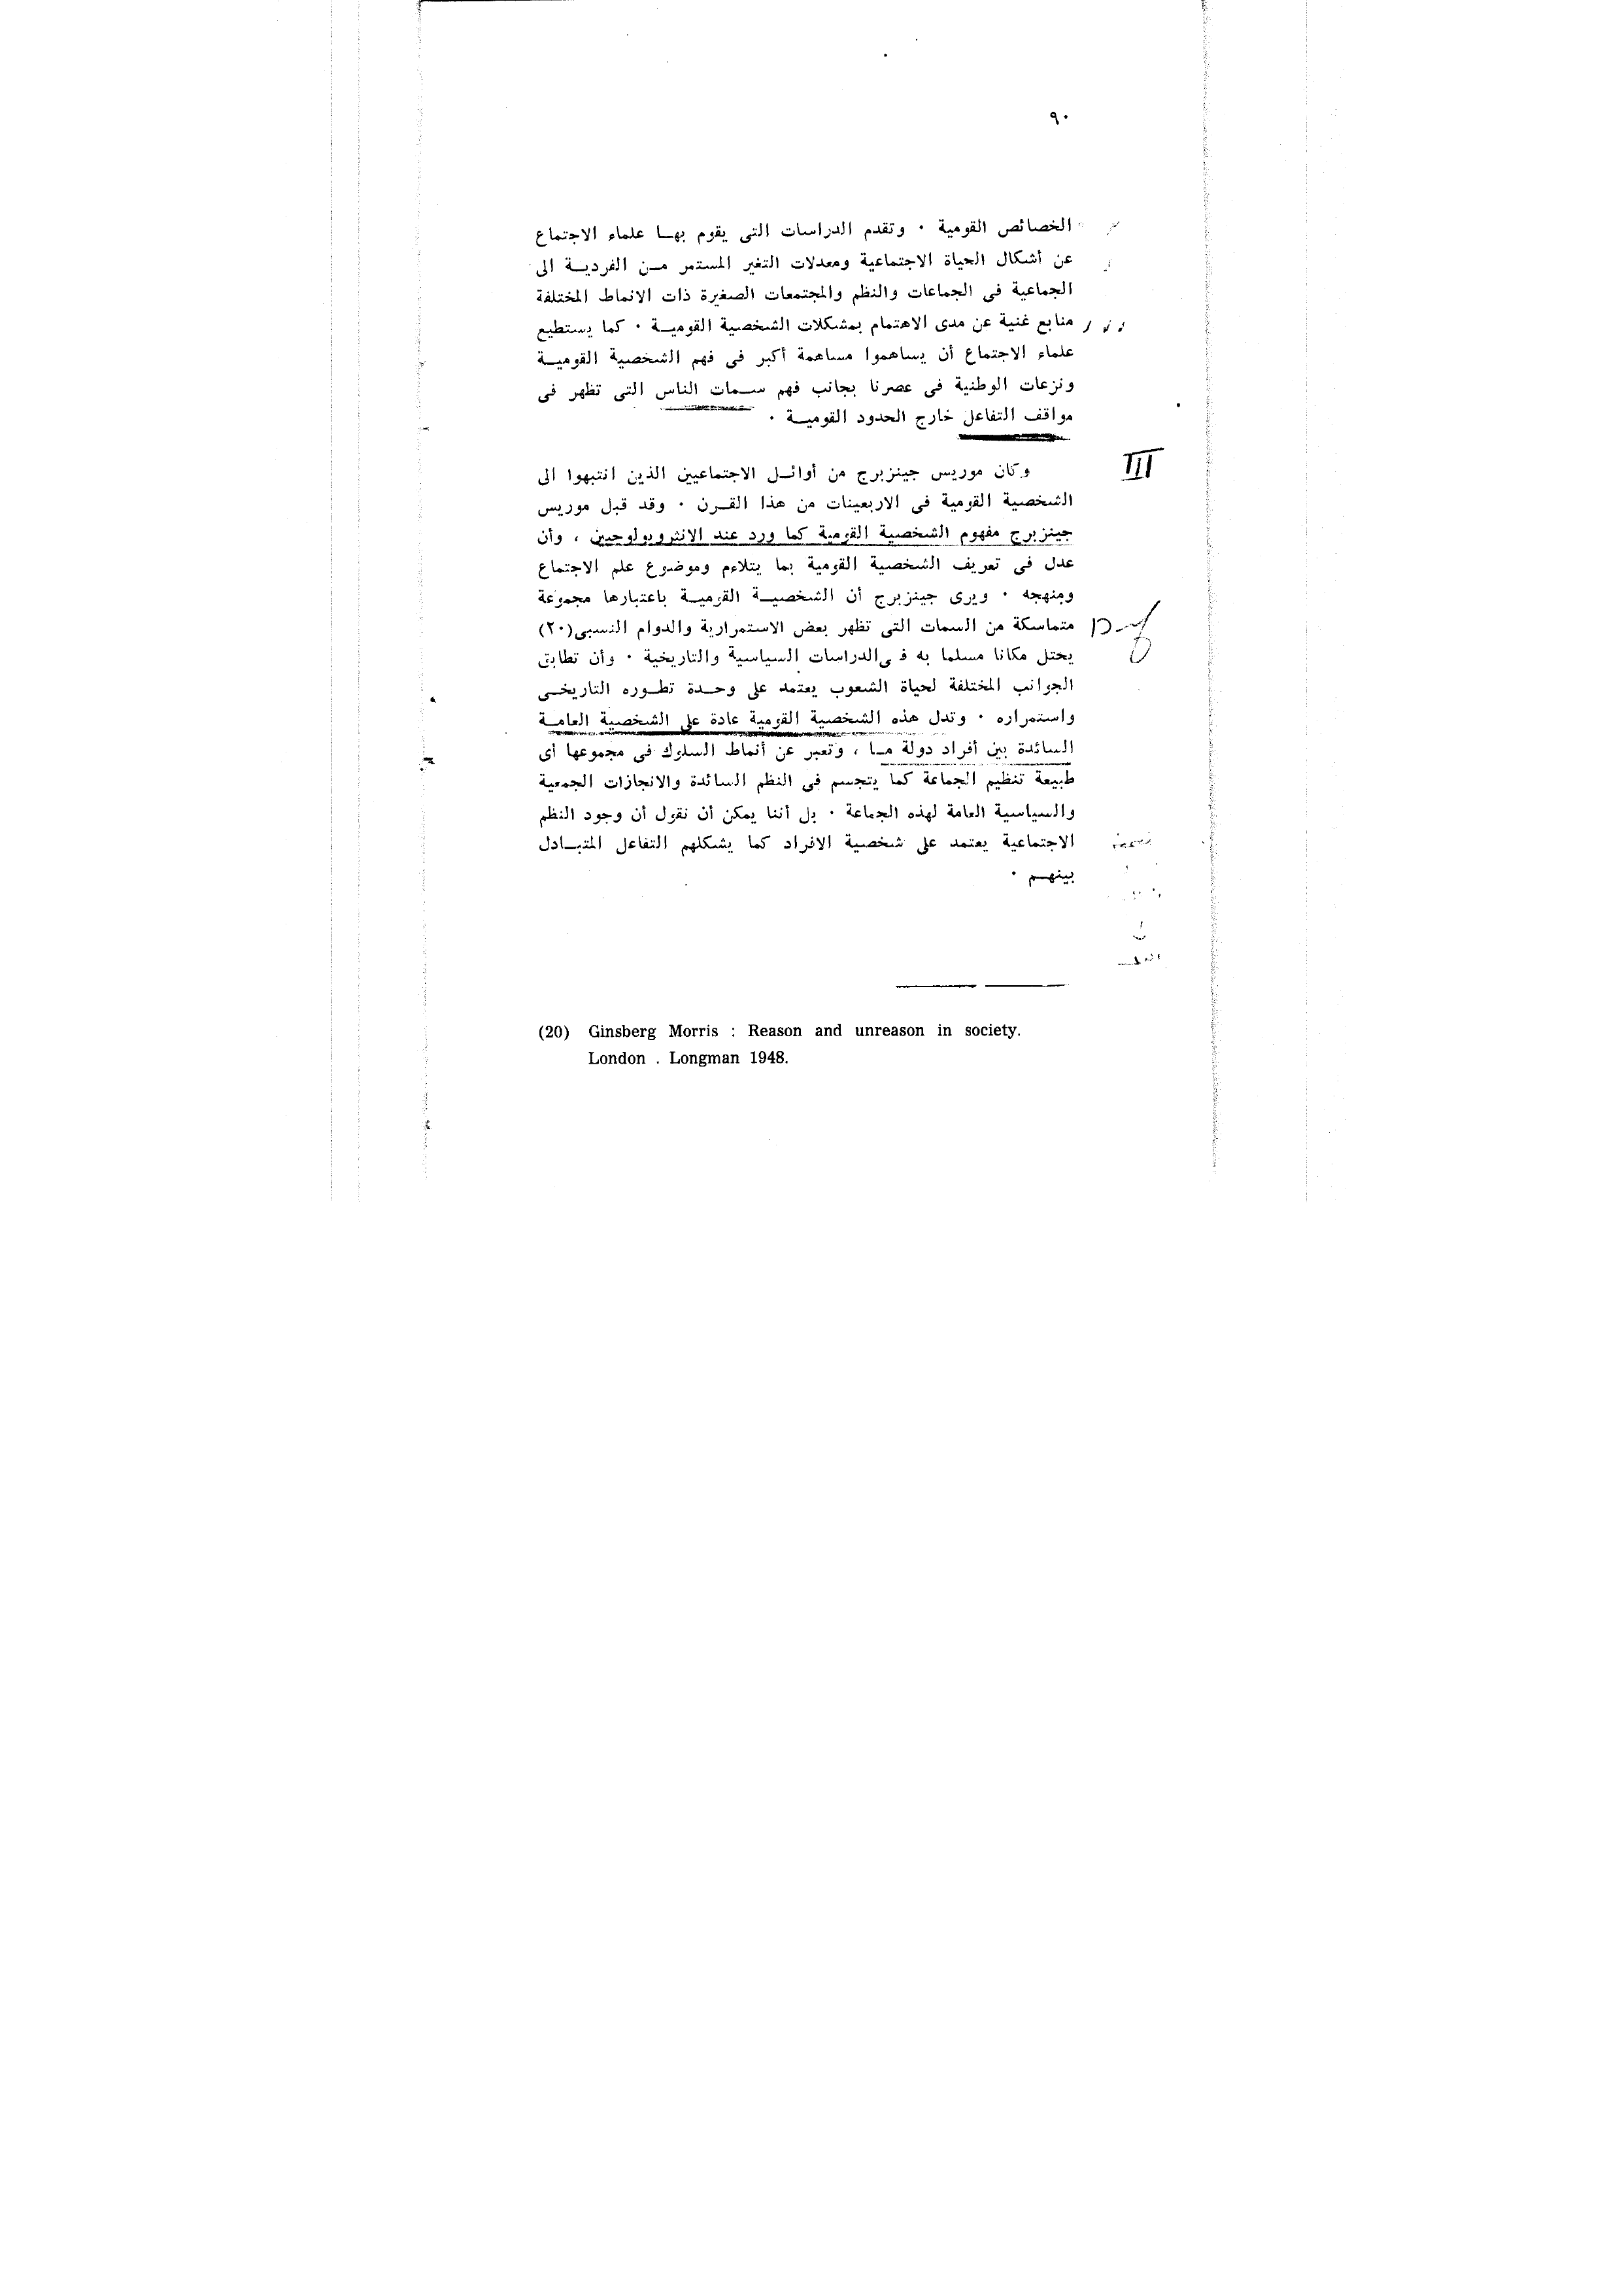 ٩٠
الخصائص القومية ٠ وتقدم الدراسات التى يقوم بهــا علماء الاجتماع
عن أشكال الحياة الاجتماعية ومعدلات التغير المستمر مــن الفرديــة الى
الجماعية فى الجماعات والنظم والمجتمعات الصغيرة ذات الانماط المختلفة
منابع غنية عن مدى الاهتمام بمشكلات الشخصية القوميــة ٠ كما يستطيع
علماء الاجتماع أن يساهموا مساهمة أكبر فى فهم الشخصية القوميــة
ونزعات الوطنية فى عصرنا بجانب فهم ســمات الناس التى تظهر فى
مواقف التفاعل خارج الحدود القوميــة ٠
III
وكان موريس جينزبرج من أوائــل الاجتماعيين الذين انتبهوا الى
الشخصية القومية فى الاربعينات من هذا القــرن ٠ وقد قبل موريس
جينزبرج مفهوم الشخصية القومية كما ورد عند الانثروبولوجيين ، وأن
عدل فى تعريف الشخصية القومية بما يتلاءم وموضوع علم الاجتماع
ومنهجه ٠ ويرى جينزبرج أن الشخصيــة القوميــة باعتبارها مجموعة
متماسكة من السمات التى تظهر بعض الاستمرارية والدوام النسبى(٢٠)
يحتل مكانا مسلما به فى الدراسات السياسية والتاريخية ٠ وأن تطابق
الجوانب المختلفة لحياة الشعوب يعتمد على وحــدة تطــوره التاريخــى
واستمراره ٠ وتدل هذه الشخصية القومية عادة على الشخصية العامــة
السائدة بين أفراد دولة مــا ، وتعبر عن أنماط السلوك فى مجموعها أى
طبيعة تنظيم الجماعة كما يتجسم فى النظم السائدة والانجازات الجمعية
والسياسية العامة لهذه الجماعة ٠ بل أننا يمكن أن نقول أن وجود النظم
الاجتماعية يعتمد على شخصية الافراد كما يشكلهم التفاعل المتبــادل
بينهــم ٠
(20) Ginsberg Morris : Reason and unreason in society.
London . Longman 1948.